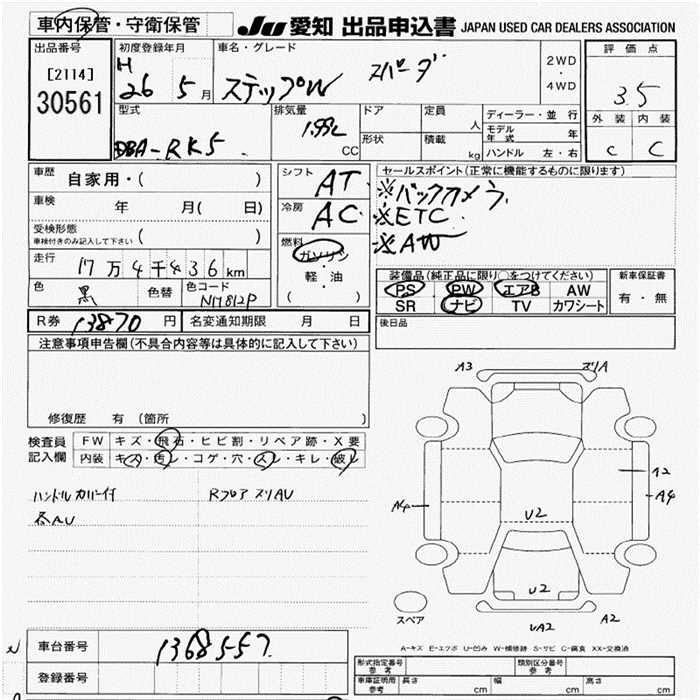 車内保管・守衛保管
JU 愛知 出品申込書 JAPAN USED CAR DEALERS ASSOCIATION
出品番号
[2114]
30561
初度登録年月
H
26 5 月
車名・グレード
ステップW スパーダ
2WD
・
4WD
評価点
3.5
外装 内装
C C
型式
DBA-RK5
排気量
1.99L
CC
ドア
形状
定員
人
積載
kg
ディーラー・並行
モデル年式 年
ハンドル 左・右
車歴 自家用・( )
車検 年 月( 日)
受検形態
車検付きのみ記入して下さい ( )
走行 17万4千436km
色 黒 色替 色コード NH812P
シフト AT
冷房 AC
燃料
ガソリン
・
軽・油
( )
セールスポイント(正常に機能するものに限ります)
※バックカメラ
※ETC
※AW
装備品(純正品に限り○をつけてください)
PS PW エアB AW
SR ナビ TV カワシート
新車保証書
有・無
後日品
R券 13870 円
名変通知期限 月 日
注意事項申告欄(不具合内容等は具体的に記入して下さい)
修復歴 有 (箇所 )
検査員
記入欄
FW キズ・飛石・ヒビ割・リペア跡・X要
内装 キズ・汚レ・コゲ・穴・スレ・キレ・破レ
ハンドルカバー付
Rフロア スリAU
各AU
A3
スリA
A2
A4
A4
U2
U2
UA2
A2
スペア
A-キズ E-エクボ U-凹み W-補修跡 S-サビ C-腐食 XX-交換済
車台番号 1368557
登録番号
型式指定番号
参考
類別区分番号
参考
車庫証明用
参考
長さ cm
幅 cm
高さ cm